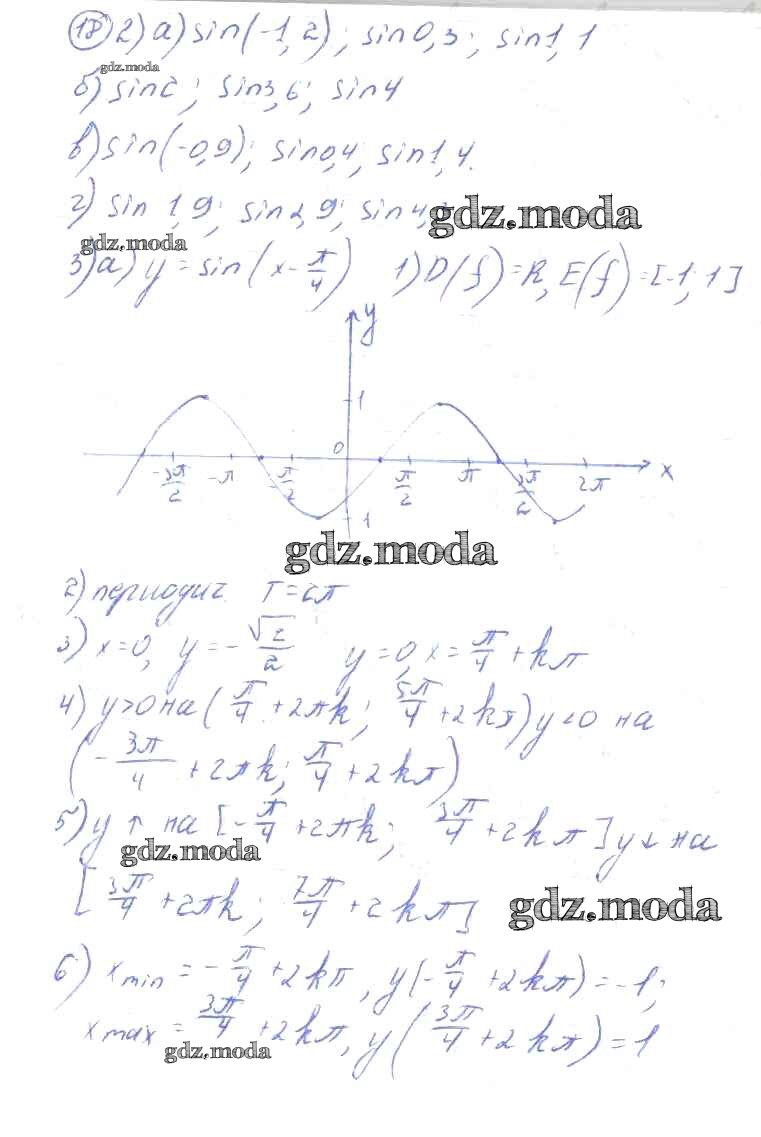 18 2) а) sin(-1,2); sin0,3; sin1,1
gdz.moda
б) sin2; sin3,6; sin4
в) sin(-0,9); sin0,4; sin1,4.
г) sin 1,9; sin2,9; sin4,
gdz.moda
gdz.moda
3) а) y = sin(x - π/4) 1) D(f) = R, E(f) = [-1; 1]
y
1
0
-3π/2 -π -π/2 π/2 π 3π/2 2π x
1
gdz.moda
2) периодич. T = 2π
3) x=0, y = -√2/2 y=0, x = π/4 + kπ
4) y>0 на (π/4 + 2πk; 5π/4 + 2kπ) y<0 на
(-3π/4 + 2πk; π/4 + 2kπ)
5) y ↑ на [-π/4 + 2πk; 3π/4 + 2kπ] y ↓ на
gdz.moda
[3π/4 + 2πk; 7π/4 + 2kπ]
gdz.moda
6) x min = -π/4 + 2kπ, y(-π/4 + 2kπ) = -1;
x max = 3π/4 + 2kπ, y(3π/4 + 2kπ) = 1
gdz.moda